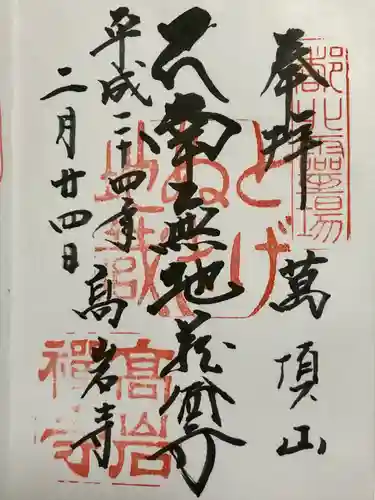 奉拝
萬頂山
南無地蔵尊
平成二十四年
二月廿四日
高岩寺
都北霊場
とげ
ぬき
地蔵
高岩
禅寺